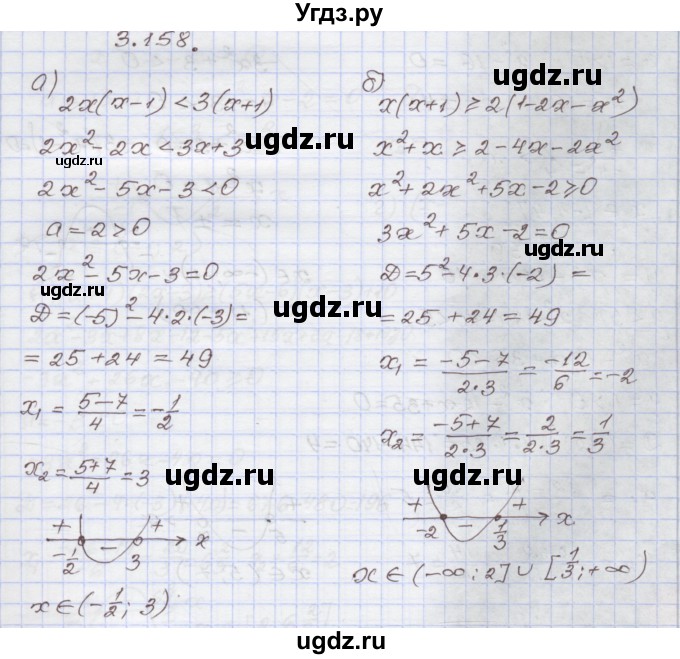 Угдз.ру
3.158.
а)
2x(x-1) < 3(x+1)
2x² - 2x < 3x + 3
2x² - 5x - 3 < 0
a = 2 > 0
2x² - 5x - 3 = 0
D = (-5)² - 4·2·(-3) =
= 25 + 24 = 49
x₁ = (5-7)/4 = -1/2
x₂ = (5+7)/4 = 3
+ - +
-1/2 3 x
x ∈ (-1/2; 3)
б)
x(x+1) ≥ 2(1-2x-x²)
x² + x ≥ 2 - 4x - 2x²
x² + 2x² + 5x - 2 ≥ 0
3x² + 5x - 2 = 0
D = 5² - 4·3·(-2) =
= 25 + 24 = 49
x₁ = (-5-7)/(2·3) = -12/6 = -2
x₂ = (-5+7)/(2·3) = 2/(2·3) = 1/3
+ - +
-2 1/3 x
x ∈ (-∞; 2] ∪ [1/3; +∞)
ugdz.ru
ugdz.ru
ugdz.ru
ugdz.ru
ugdz.ru
ugdz.ru
ugdz.ru
ugdz.ru
ugdz.ru
ugdz.ru